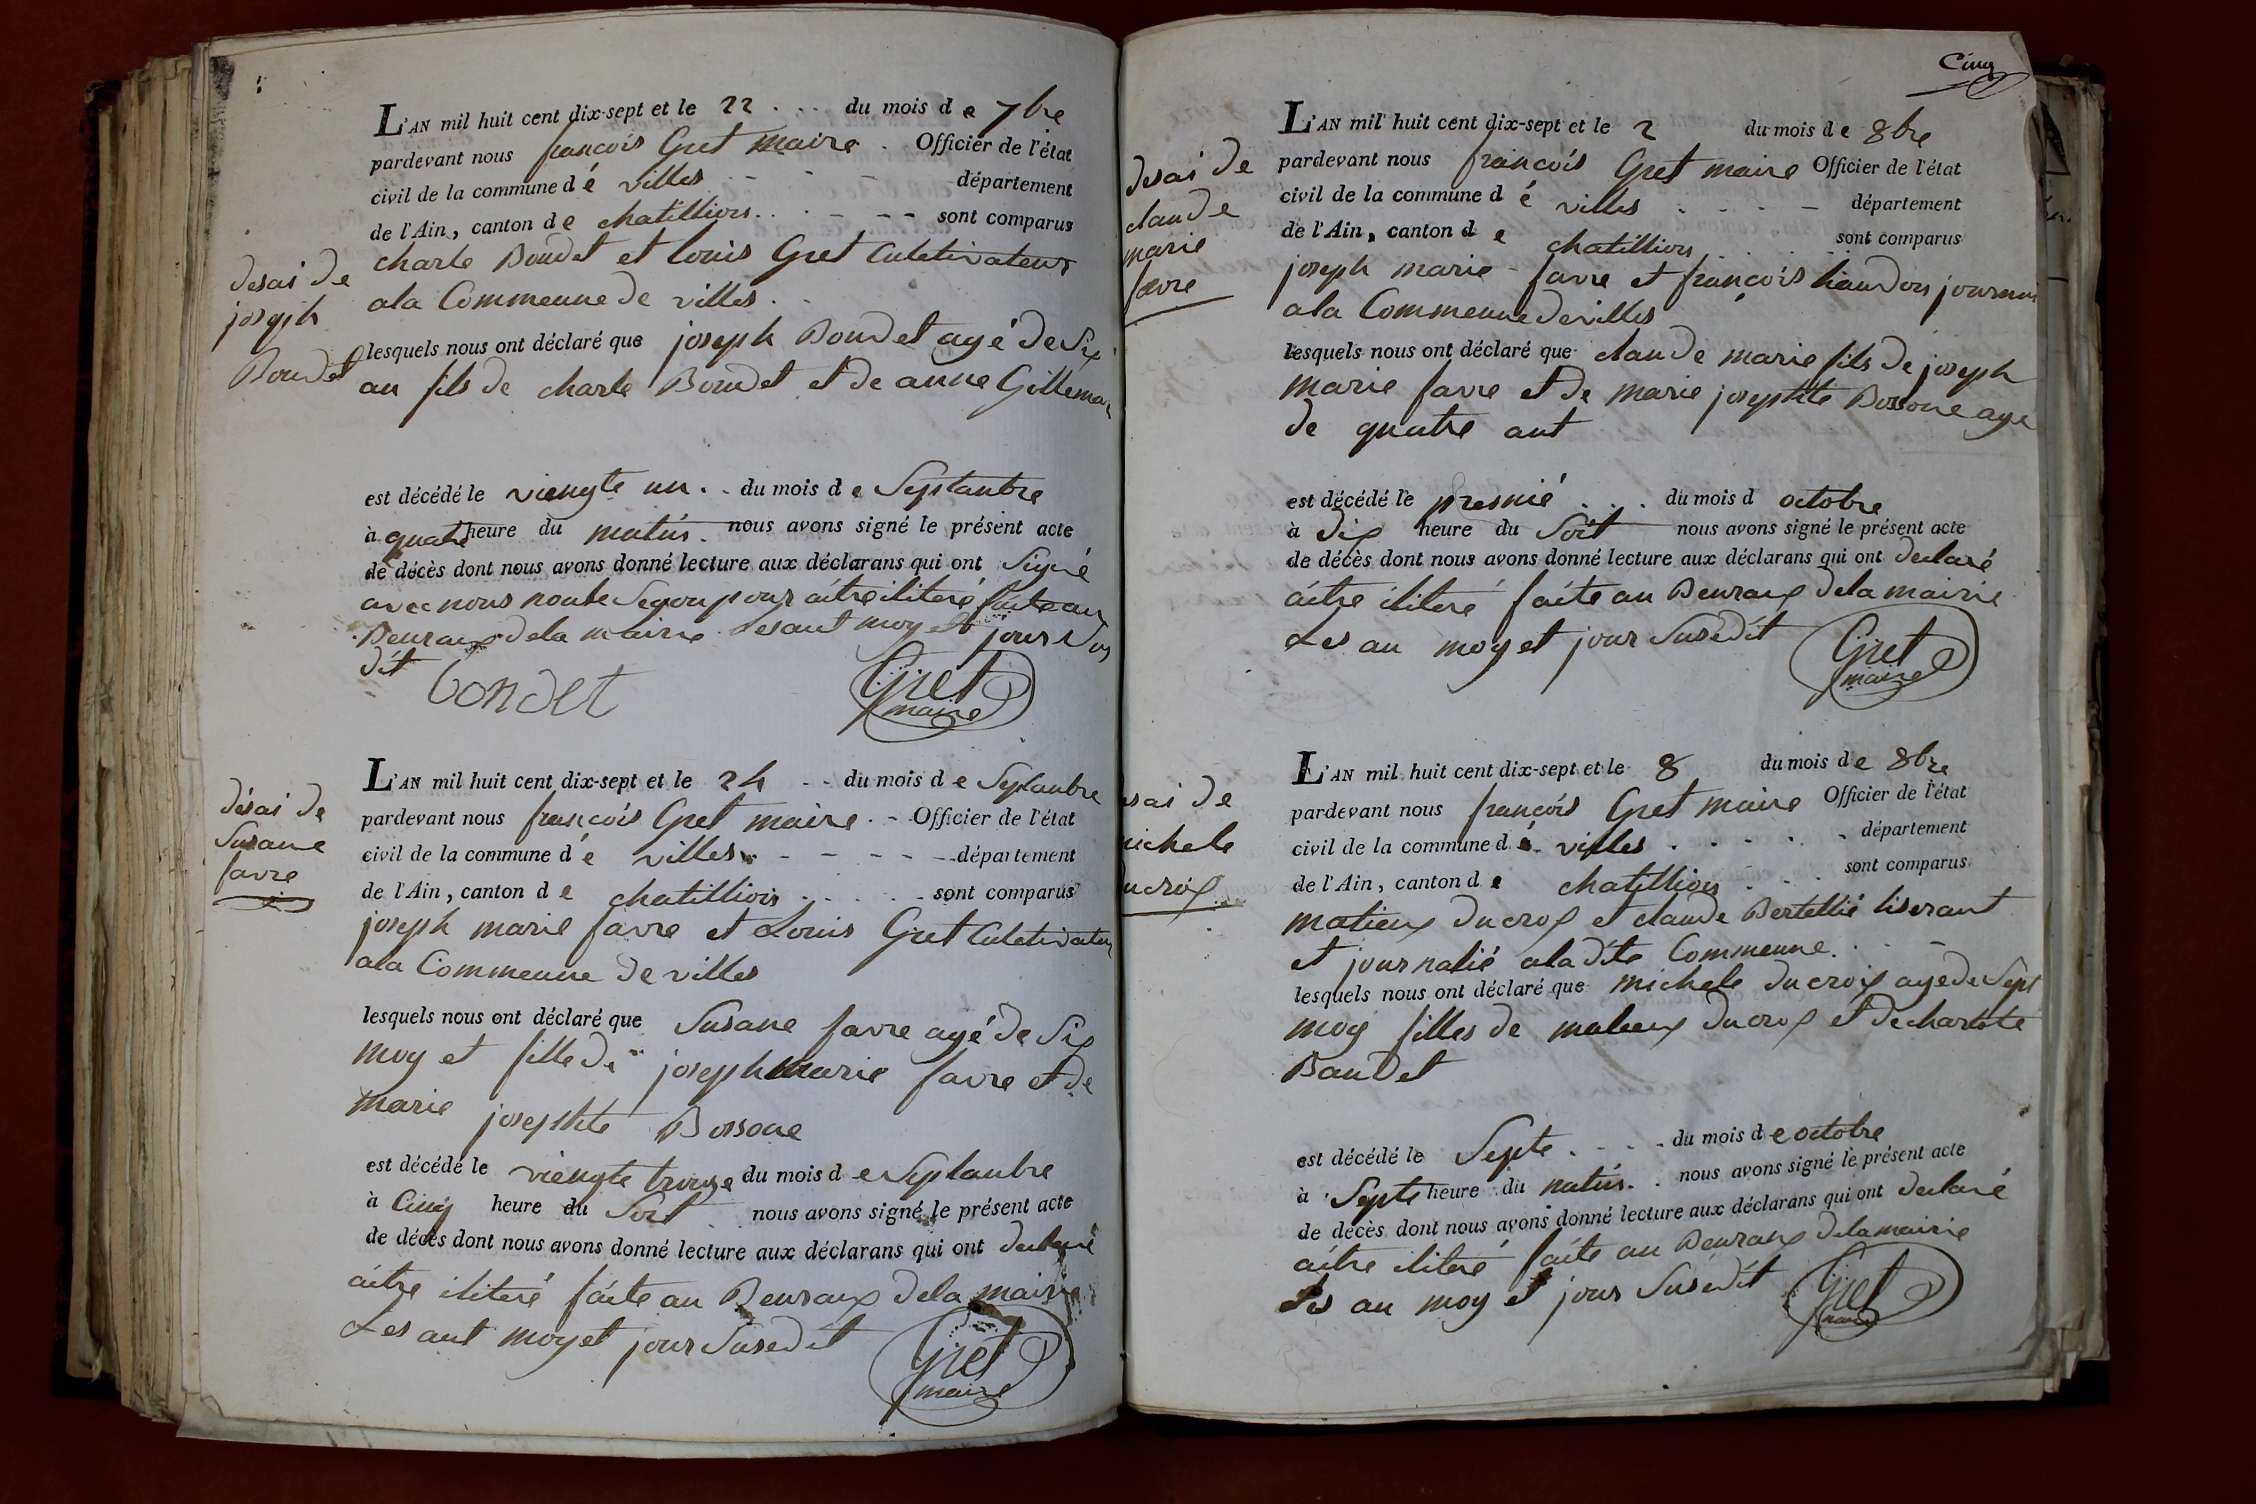 desai de
joseph
Boudet
L'AN mil huit cent dix-sept et le 22 du mois de 7bre
pardevant nous françois Gret maire Officier de l'état
civil de la commune dé villes département
de l'Ain, canton de chatillion sont comparus
charle Boudet et louis Gret Culetivateur
ala Commeune de villes
lesquels nous ont déclaré que joseph Boudet agé de Six
an fils de charle Boudet et de anne
est décédé le viengte un du mois de Septanbre
à quatre heure du matin nous avons signé le présent acte
de décès dont nous avons donné lecture aux déclarans qui ont Signé
avec nous Segon pour aitre iliteré faite au
Beuraux de la mairie Lesant moy et jour Sus
dit
bondet
Gret
maire
désai de
Susane
favre
L'AN mil huit cent dix-sept et le 24 du mois de Septanbre
pardevant nous françois Gret maire Officier de l'état
civil de la commune dé villes département
de l'Ain, canton de chatillion sont comparus
joseph marie favre et Louis Gret Culetivateur
ala Commeune de villes
lesquels nous ont déclaré que Susane favre agé de Six
moy et fille de joseph marie favre et de
marie josephte Bossone
est décédé le viengte trouze du mois de Septanbre
à Cinq heure du Soit nous avons signé le présent acte
de décès dont nous avons donné lecture aux déclarans qui ont declaré
aitre iliteré faite au Beuraux dela mairie
Les ant moy et jour Susedit
Gret
maire
Cinq
desai de
claude
marie
favre
L'AN mil huit cent dix-sept et le 2 du mois de 8bre
pardevant nous françois Gret maire Officier de l'état
civil de la commune dé villes département
de l'Ain, canton de chatillion sont comparus
joseph marie favre et françois liaudon
ala Commeune de villes
lesquels nous ont déclaré que claude marie fils de joseph
marie favre et de marie josephte Bossone age
de quatre ant
est décédé le premié du mois d octobre
à dix heure du Soit nous avons signé le présent acte
de décès dont nous avons donné lecture aux déclarans qui ont declaré
aitre iliteré faite au Beuraux dela mairie
Les an moy et jour Susedit
Gret
maire
esai de
ichele
ucrox
L'AN mil huit cent dix-sept et le 8 du mois de 8bre
pardevant nous françois Gret maire Officier de l'état
civil de la commune dé villes département
de l'Ain, canton de chatillion sont comparus
matieux ducrox et claude Bertellié tiserant
et journalié aladite Commeune
lesquels nous ont déclaré que michele ducroix age de Sept
moy filles de matieux ducrox et de charlote
Baudet
est décédé le Septe du mois de octobre
à Septe heure du matin nous avons signé le présent acte
de décès dont nous avons donné lecture aux déclarans qui ont declaré
aitre iliteré faite au Beuraux dela mairie
Les an moy et jour Susedit
Gret
maire